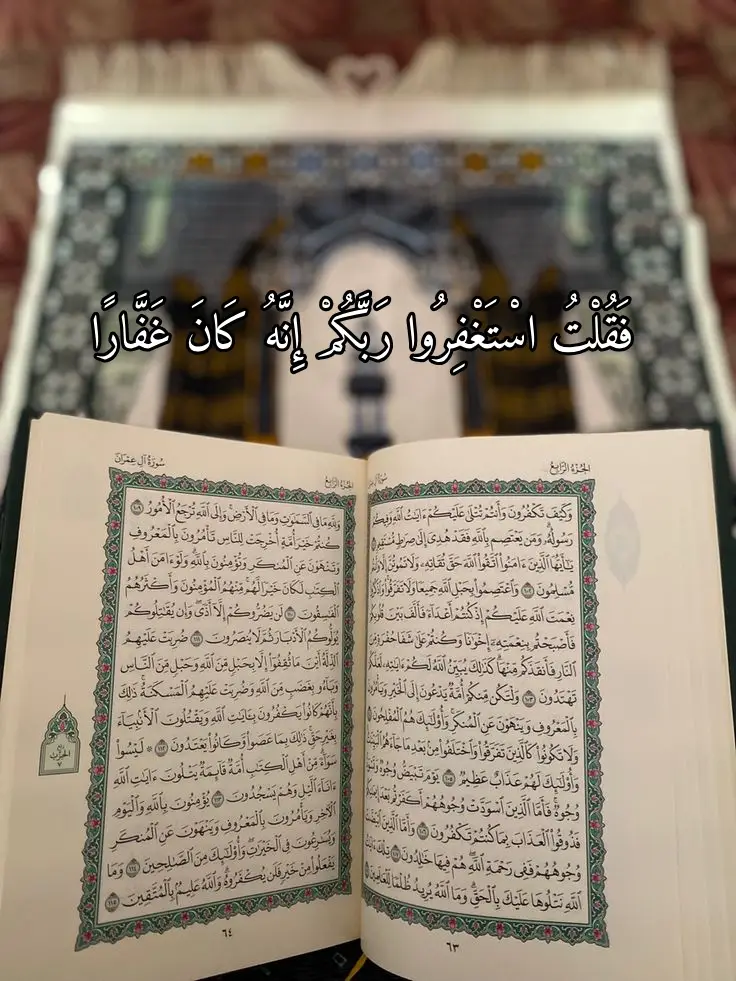 فَقُلْتُ اسْتَغْفِرُوا رَبَّكُمْ إِنَّهُ كَانَ غَفَّارًا
الجُزءُ الرَّابِعُ
وَكَيْفَ تَكْفُرُونَ وَأَنتُمْ تُتْلَىٰ عَلَيْكُمْ ءَايَٰتُ ٱللَّهِ وَفِيكُمْ
رَسُولُهُۥۗ وَمَن يَعْتَصِم بِٱللَّهِ فَقَدْ هُدِيَ إِلَىٰ صِرَٰطٖ مُّسْتَقِيمٖ
يَٰٓأَيُّهَا ٱلَّذِينَ ءَامَنُواْ ٱتَّقُواْ ٱللَّهَ حَقَّ تُقَاتِهِۦ وَلَا تَمُوتُنَّ إِلَّا وَأَنتُم
مُّسۡلِمُونَ ١٠٢ وَٱعۡتَصِمُواْ بِحَبۡلِ ٱللَّهِ جَمِيعٗا وَلَا تَفَرَّقُواْۚ وَٱذۡكُرُواْ
نِعۡمَتَ ٱللَّهِ عَلَيۡكُمۡ إِذۡ كُنتُمۡ أَعۡدَآءٗ فَأَلَّفَ بَيۡنَ قُلُوبِكُمۡ
فَأَصۡبَحۡتُم بِنِعۡمَتِهِۦٓ إِخۡوَٰنٗا وَكُنتُمۡ عَلَىٰ شَفَا حُفۡرَةٖ مِّنَ
ٱلنَّارِ فَأَنقَذَكُم مِّنۡهَاۗ كَذَٰلِكَ يُبَيِّنُ ٱللَّهُ لَكُمۡ ءَايَٰتِهِۦ لَعَلَّكُمۡ
تَهۡتَدُونَ ١٠٣ وَلۡتَكُن مِّنكُمۡ أُمَّةٞ يَدۡعُونَ إِلَى ٱلۡخَيۡرِ وَيَأۡمُرُونَ
بِٱلۡمَعۡرُوفِ وَيَنۡهَوۡنَ عَنِ ٱلۡمُنكَرِۚ وَأُوْلَٰٓئِكَ هُمُ ٱلۡمُفۡلِحُونَ
وَلَا تَكُونُواْ كَٱلَّذِينَ تَفَرَّقُواْ وَٱخۡتَلَفُواْ مِنۢ بَعۡدِ مَا جَآءَهُمُ ٱلۡبَيِّنَٰتُۚ
وَأُوْلَٰٓئِكَ لَهُمۡ عَذَابٌ عَظِيمٞ ١٠٥ يَوۡمَ تَبۡيَضُّ وُجُوهٞ وَتَسۡوَدُّ
وُجُوهٞۚ فَأَمَّا ٱلَّذِينَ ٱسۡوَدَّتۡ وُجُوهُهُمۡ أَكَفَرۡتُم بَعۡدَ إِيمَٰنِكُمۡ
فَذُوقُواْ ٱلۡعَذَابَ بِمَا كُنتُمۡ تَكۡفُرُونَ ١٠٦ وَأَمَّا ٱلَّذِينَ ٱبۡيَضَّتۡ
وُجُوهُهُمۡ فَفِي رَحۡمَةِ ٱللَّهِۖ هُمۡ فِيهَا خَٰلِدُونَ ١٠٧ تِلۡكَ ءَايَٰتُ
ٱللَّهِ نَتۡلُوهَا عَلَيۡكَ بِٱلۡحَقِّۗ وَمَا ٱللَّهُ يُرِيدُ ظُلۡمٗا لِّلۡعَٰلَمِينَ
٦٣
الجُزءُ الرَّابِعُ
سُورَةُ آلِ عِمۡرَانَ
وَلِلَّهِ مَا فِي ٱلسَّمَٰوَٰتِ وَمَا فِي ٱلۡأَرۡضِۚ وَإِلَى ٱللَّهِ تُرۡجَعُ ٱلۡأُمُورُ ١٠٩
كُنتُمۡ خَيۡرَ أُمَّةٍ أُخۡرِجَتۡ لِلنَّاسِ تَأۡمُرُونَ بِٱلۡمَعۡرُوفِ
وَتَنۡهَوۡنَ عَنِ ٱلۡمُنكَرِ وَتُؤۡمِنُونَ بِٱللَّهِۗ وَلَوۡ ءَامَنَ أَهۡلُ
ٱلۡكِتَٰبِ لَكَانَ خَيۡرٗا لَّهُمۚ مِّنۡهُمُ ٱلۡمُؤۡمِنُونَ وَأَكۡثَرُهُمُ
ٱلۡفَٰسِقُونَ ١١٠ لَن يَضُرُّوكُمۡ إِلَّآ أَذٗىۖ وَإِن يُقَٰتِلُوكُمۡ
يُوَلُّوكُمُ ٱلۡأَدۡبَارَ ثُمَّ لَا يُنصَرُونَ ١١١ ضُرِبَتۡ عَلَيۡهِمُ
ٱلذِّلَّةُ أَيۡنَ مَا ثُقِفُوٓاْ إِلَّا بِحَبۡلٖ مِّنَ ٱللَّهِ وَحَبۡلٖ مِّنَ ٱلنَّاسِ
وَبَآءُو بِغَضَبٖ مِّنَ ٱللَّهِ وَضُرِبَتۡ عَلَيۡهِمُ ٱلۡمَسۡكَنَةُۚ ذَٰلِكَ
بِأَنَّهُمۡ كَانُواْ يَكۡفُرُونَ بِـَٔايَٰتِ ٱللَّهِ وَيَقۡتُلُونَ ٱلۡأَنۢبِيَآءَ
بِغَيۡرِ حَقّٖۚ ذَٰلِكَ بِمَا عَصَواْ وَّكَانُواْ يَعۡتَدُونَ ١١٢ ۞ لَيۡسُواْ
سَوَآءٗۗ مِّنۡ أَهۡلِ ٱلۡكِتَٰبِ أُمَّةٞ قَآئِمَةٞ يَتۡلُونَ ءَايَٰتِ ٱللَّهِ
ءَانَآءَ ٱلَّيۡلِ وَهُمۡ يَسۡجُدُونَ ١١٣ يُؤۡمِنُونَ بِٱللَّهِ وَٱلۡيَوۡمِ
ٱلۡأٓخِرِ وَيَأۡمُرُونَ بِٱلۡمَعۡرُوفِ وَيَنۡهَوۡنَ عَنِ ٱلۡمُنكَرِ
وَيُسَٰرِعُونَ فِي ٱلۡخَيۡرَٰتِۖ وَأُوْلَٰٓئِكَ مِنَ ٱلصَّٰلِحِينَ ١١٤ وَمَا
يَفۡعَلُواْ مِنۡ خَيۡرٖ فَلَن يُكۡفَرُوهُۗ وَٱللَّهُ عَلِيمُۢ بِٱلۡمُتَّقِينَ ١١٥
٦٤